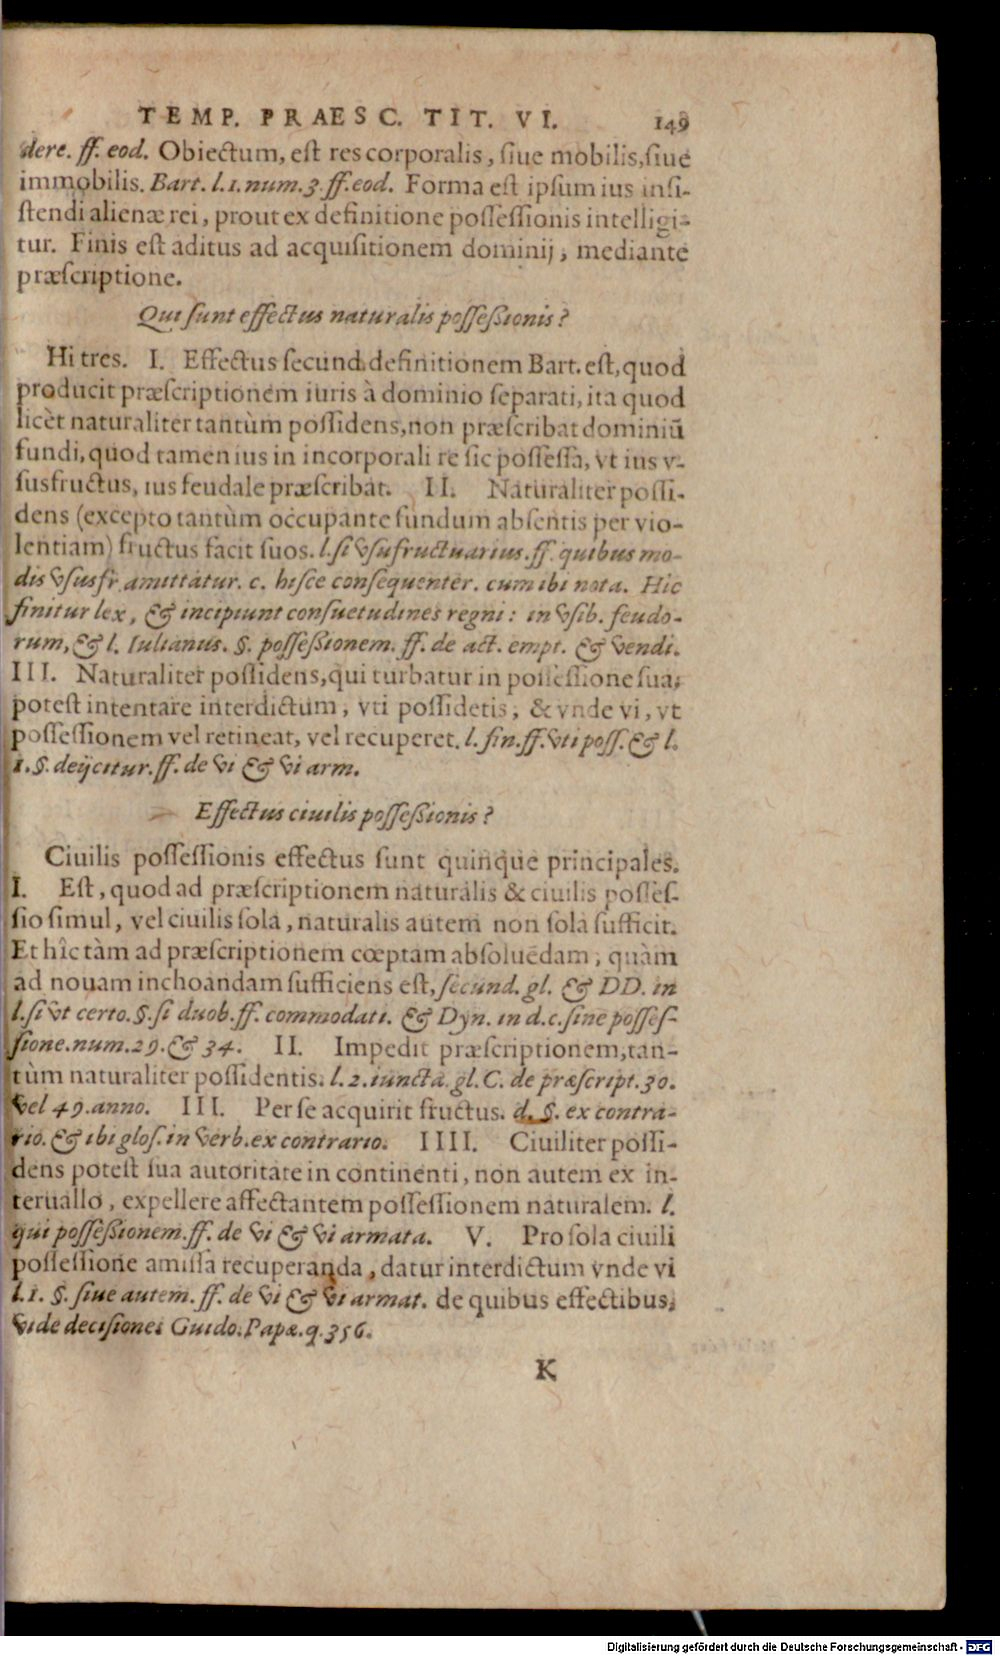 TEMP. PRAESC. TIT. VI. 149
dere. ff. eod. Obiectum, est res corporalis, siue mobilis, siue
immobilis. Bart. l.1. num.3. ff. eod. Forma est ipsum ius insi-
stendi alienæ rei, prout ex definitione possessionis intelligi-
tur. Finis est aditus ad acquisitionem dominij, mediante
præscriptione.
Qui sunt effectus naturalis possessionis?
Hi tres. I. Effectus secund. definitionem Bart. est, quod
producit præscriptionem iuris à dominio separati, ita quod
licèt naturaliter tantùm possidens, non præscribat dominiū
fundi, quod tamen ius in incorporali re sic possessa, vt ius v-
susfructus, ius feudale præscribat. II. Naturaliter possi-
dens (excepto tantùm occupante fundum absentis per vio-
lentiam) fructus facit suos. l. si vsufructuarius. ff. quibus mo-
dis vsusfr. amittatur. c. hisce consequenter. cum ibi nota. Hic
finitur lex, & incipiunt consuetudines regni: in vsib. feudo-
rum, & l. Iulianus. §. possessionem. ff. de act. empt. & vendi.
III. Naturaliter possidens, qui turbatur in possessione sua,
potest intentare interdictum, vti possidetis, & vnde vi, vt
possessionem vel retineat, vel recuperet. l. fin. ff. vti poss. & l.
1. §. deijcitur. ff. de vi & vi arm.
Effectus ciuilis possessionis?
Ciuilis possessionis effectus sunt quinque principales.
I. Est, quod ad præscriptionem naturalis & ciuilis posses-
sio simul, vel ciuilis sola, naturalis autem non sola sufficit.
Et hîc tàm ad præscriptionem cœptam absoluēdam, quàm
ad nouam inchoandam sufficiens est, secund. gl. & DD. in
l. si vt certo. §. si duob. ff. commodati. & Dyn. in d. c. sine posses-
sione. num. 29. & 34. II. Impedit præscriptionem, tan-
tùm naturaliter possidentis. l. 2. iuncta. gl. C. de præscript. 30.
vel 49. anno. III. Per se acquirit fructus. d. §. ex contra-
rio. & ibi glos. in verb. ex contrario. IIII. Ciuiliter possi-
dens potest sua autoritate in continenti, non autem ex in-
teruallo, expellere affectantem possessionem naturalem. l.
qui possessionem. ff. de vi & vi armata. V. Pro sola ciuili
possessione amissa recuperanda, datur interdictum vnde vi
l. 1. §. siue autem. ff. de vi & vi armat. de quibus effectibus,
vide decisiones Guido. Papæ. q. 356.
K
Digitalisierung gefördert durch die Deutsche Forschungsgemeinschaft - DFG